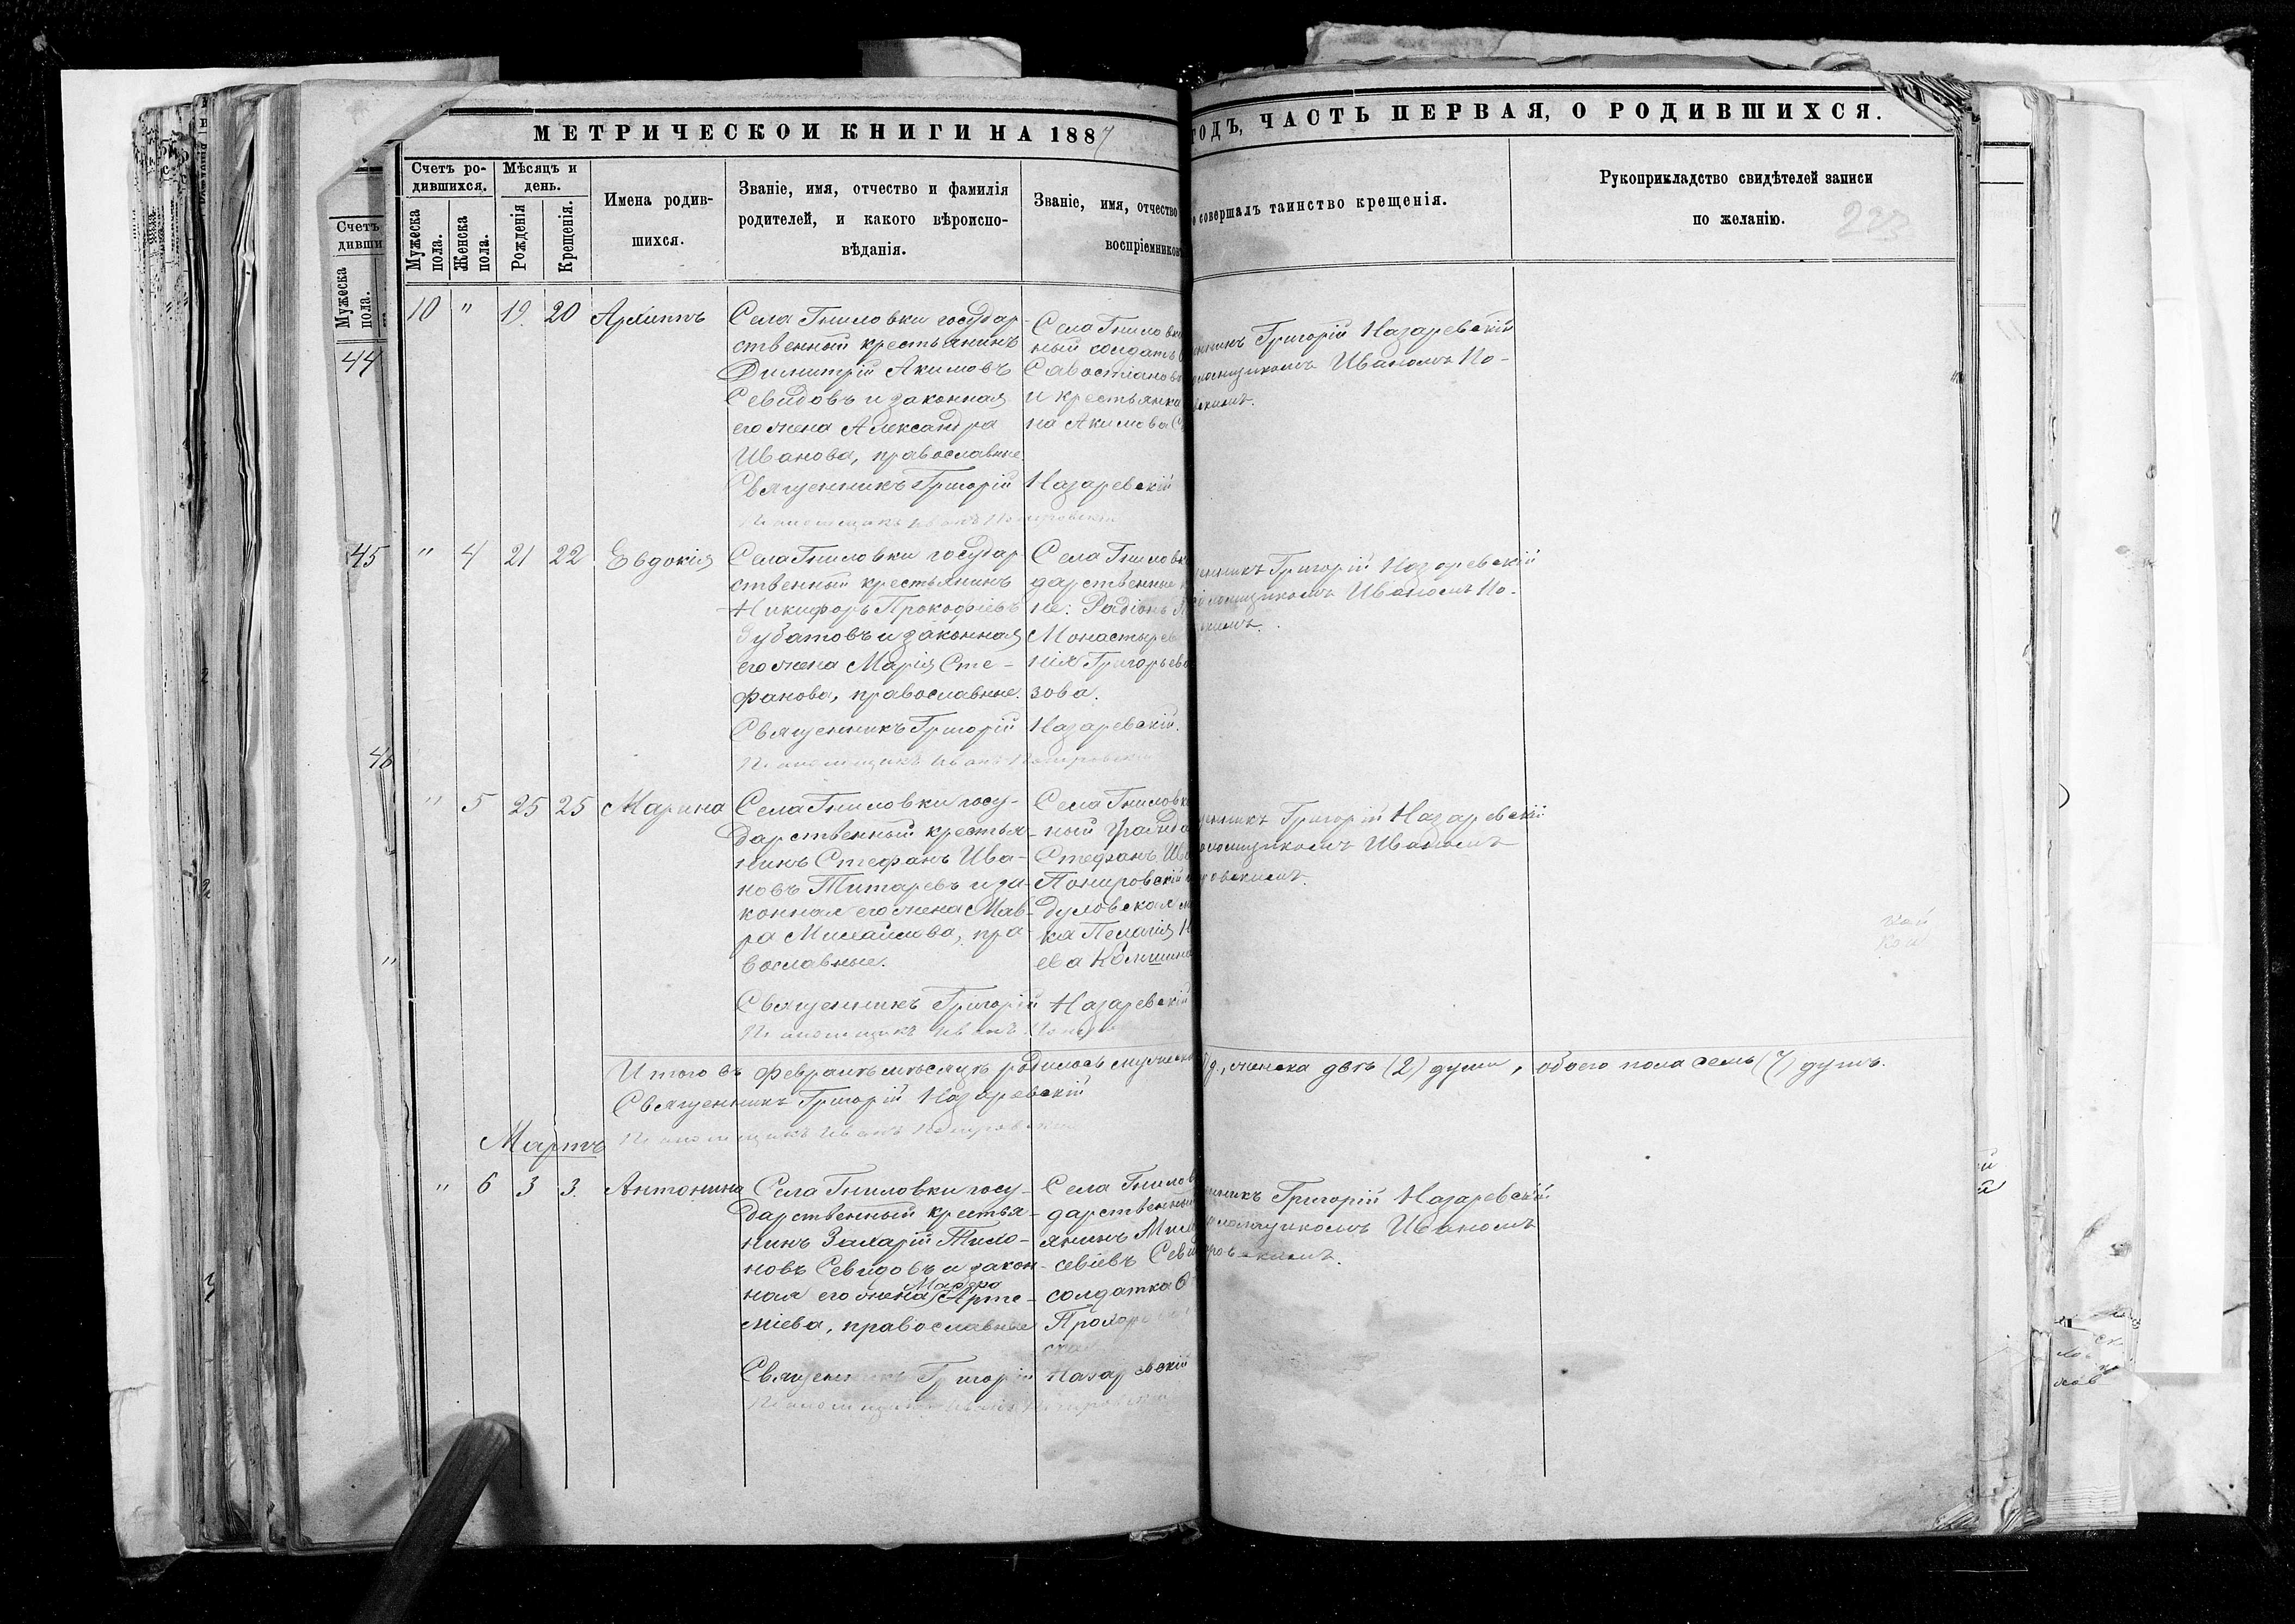 МЕТРИЧЕСКОЙ КНИГИ НА 1887
ГОДЪ, ЧАСТЬ ПЕРВАЯ, О РОДИВШИХСЯ.
Счетъ ро-
дившихся.
Мужеска
пола.
Женска
пола.
Мѣсяцъ и
день.
Рожденія
Крещенія.
Имена родив-
шихся.
Званіе, имя, отчество и фамилія
родителей, и какого вѣроиспо-
вѣданія.
Званіе, имя, отчество
воспріемниковъ
совершалъ таинство крещенія.
Рукоприкладство свидѣтелей записи
по желанію.
223
Счетъ
дивши
Мужеска
пола.
44
45
46
"
10 " 19 20 Архиппъ
Села Гниловки государ-
ственный крестьянинъ
Димитрій Акимовъ
Севидовъ и законная
его жена Александра
Иванова, православные.
Священникъ Григорій Назаревскій
Псаломщикъ Иванъ Понировскій
Села Гниловки
ный солдатъ
Савостіановъ
и крестьянка
на Акимова С
Григорій Назаревскій
Иваномъ По-
" 4 21 22 Евдокія
Села Гниловки государ-
ственный крестьянинъ
Никифоръ Прокофіевъ
Зубатовъ и законная
его жена Марія Сте-
фанова, православные.
Священникъ Григорій Назаревскій.
Псаломщикъ Иванъ Понировскій
Села Гниловк
дарственные
не: Радіонъ
Монастырев
нія Григорьева
зова.
Григорій Назаревскій
Иваномъ По-
" 5 25 25 Марина
Села Гниловки госу-
дарственный крестья-
нинъ Стефанъ Ива-
новъ Титаревъ и за-
конная его жена Мав-
ра Михайлова, пра-
вославные.
Священникъ Григорій Назаревскій
Псаломщикъ Иванъ Понировс
Села Гниловк
ный гражда
Стефанъ Ив
Понировскій
дуловская
ка Пелагія
ева
Григорій Назаревскій
Иваномъ
Итого въ Февралѣ мѣсяцѣ родилось мужеска
женска двѣ (2) души, обоего пола семь (7) душъ.
Священникъ Григорій Назаревскій
Псаломщикъ Иванъ Понировскій
Мартъ
" 6 3 3. Антонина
Села Гниловки госу-
дарственный крестья-
нинъ Захарій Тихо-
новъ Севидовъ и закон-
Мавра
ная его жена Арте-
міева, православные
Священникъ Григорій Назаревскій
Псаломщикъ Иванъ Понировскій
Села Гнилов
дарственный
янинъ Мих
сѣевъ Сев
солдатка
Прохор
Григорій Назаревскій
Иваномъ